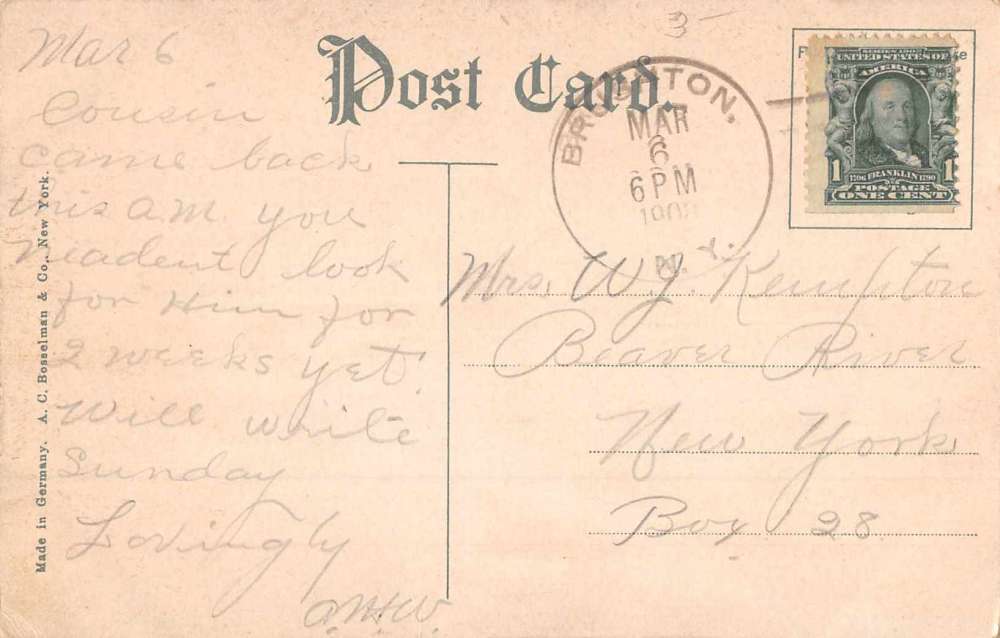 Mar 6
Cousin
came back
this am you
neadent look
for Him for
2 weeks yet.
Will write
Sunday
Lovingly
Made in Germany. A. C. Bosselman & Co., New York.
3-
Post Card.
MAR
6
6 PM
1908
N. Y.
SERIES 1902
UNITED STATES OF
AMERICA
1 1
1706 FRANKLIN 1790
POSTAGE
ONE CENT
Mrs. W. J. Kempton
Beaver River
New York
Box 28